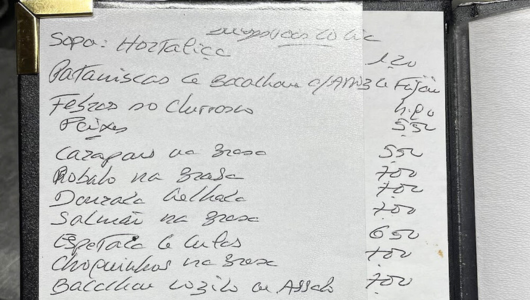 Sopa: Hortaliça 120
Pataniscas de Bacalhau c/Arroz de Feijão
Febras no Churrasco
Peixes 550
Carapau na Brasa 550
Robalo na Brasa 700
Dourada Grelhada 700
Salmão na Brasa 700
Espetada de Lulas 650
Choquinhos na Brasa 700
Bacalhau cozido ou Assado 700